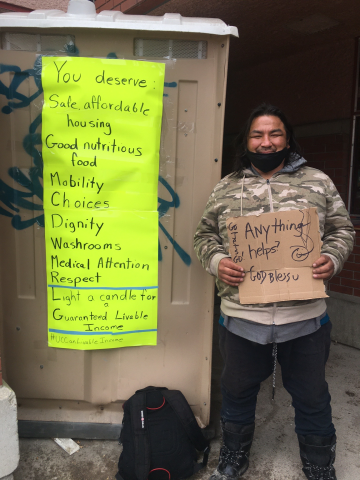 You deserve:
Safe, affordable
housing
Good nutritious
food
Mobility
Choices
Dignity
Washrooms
Medical Attention
Respect
Light a candle for
a
Guaranteed Livable
Income
#UCCanLivableIncome
ANything
helps?
GOD BLESS U